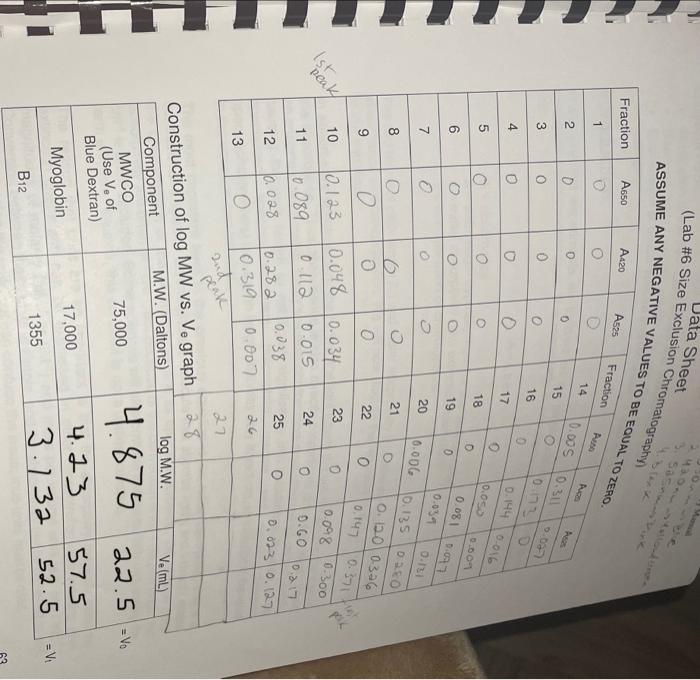 Data Sheet
(Lab #6 Size Exclusion Chromatography)
ASSUME ANY NEGATIVE VALUES TO BE EQUAL TO ZERO.
Fraction A650 A420 A525 Fraction A650 A420 A525
1 0 0 0 14 0.005 0.311 0.027
2 0 0 0 15 0 0.173 0
3 0 0 0 16 0 0.144 0.016
4 0 0 0 17 0 0.050 0.009
5 0 0 0 18 0 0.081 0.097
6 0 0 0 19 0 0.039 0.131
7 0 0 0 20 0.006 0.135 0.280
8 0 0 0 21 0 0.120 0.326
9 0 0 0 22 0 0.147 0.371
1st peak 10 0.123 0.048 0.034 23 0 0.098 0.300
11 0.089 0.112 0.015 24 0 0.60 0.217
12 0.028 0.282 0.038 25 0 0.023 0.127
13 0 0.319 0.007 26
2nd peak 27
28
Construction of log MW vs. Ve graph
Component M.W. (Daltons) log M.W. Ve (mL)
MWCO
(Use Ve of
Blue Dextran) 75,000 4.875 22.5 = V0
Myoglobin 17,000 4.23 57.5
B12 1355 3.132 52.5 = Vi
63